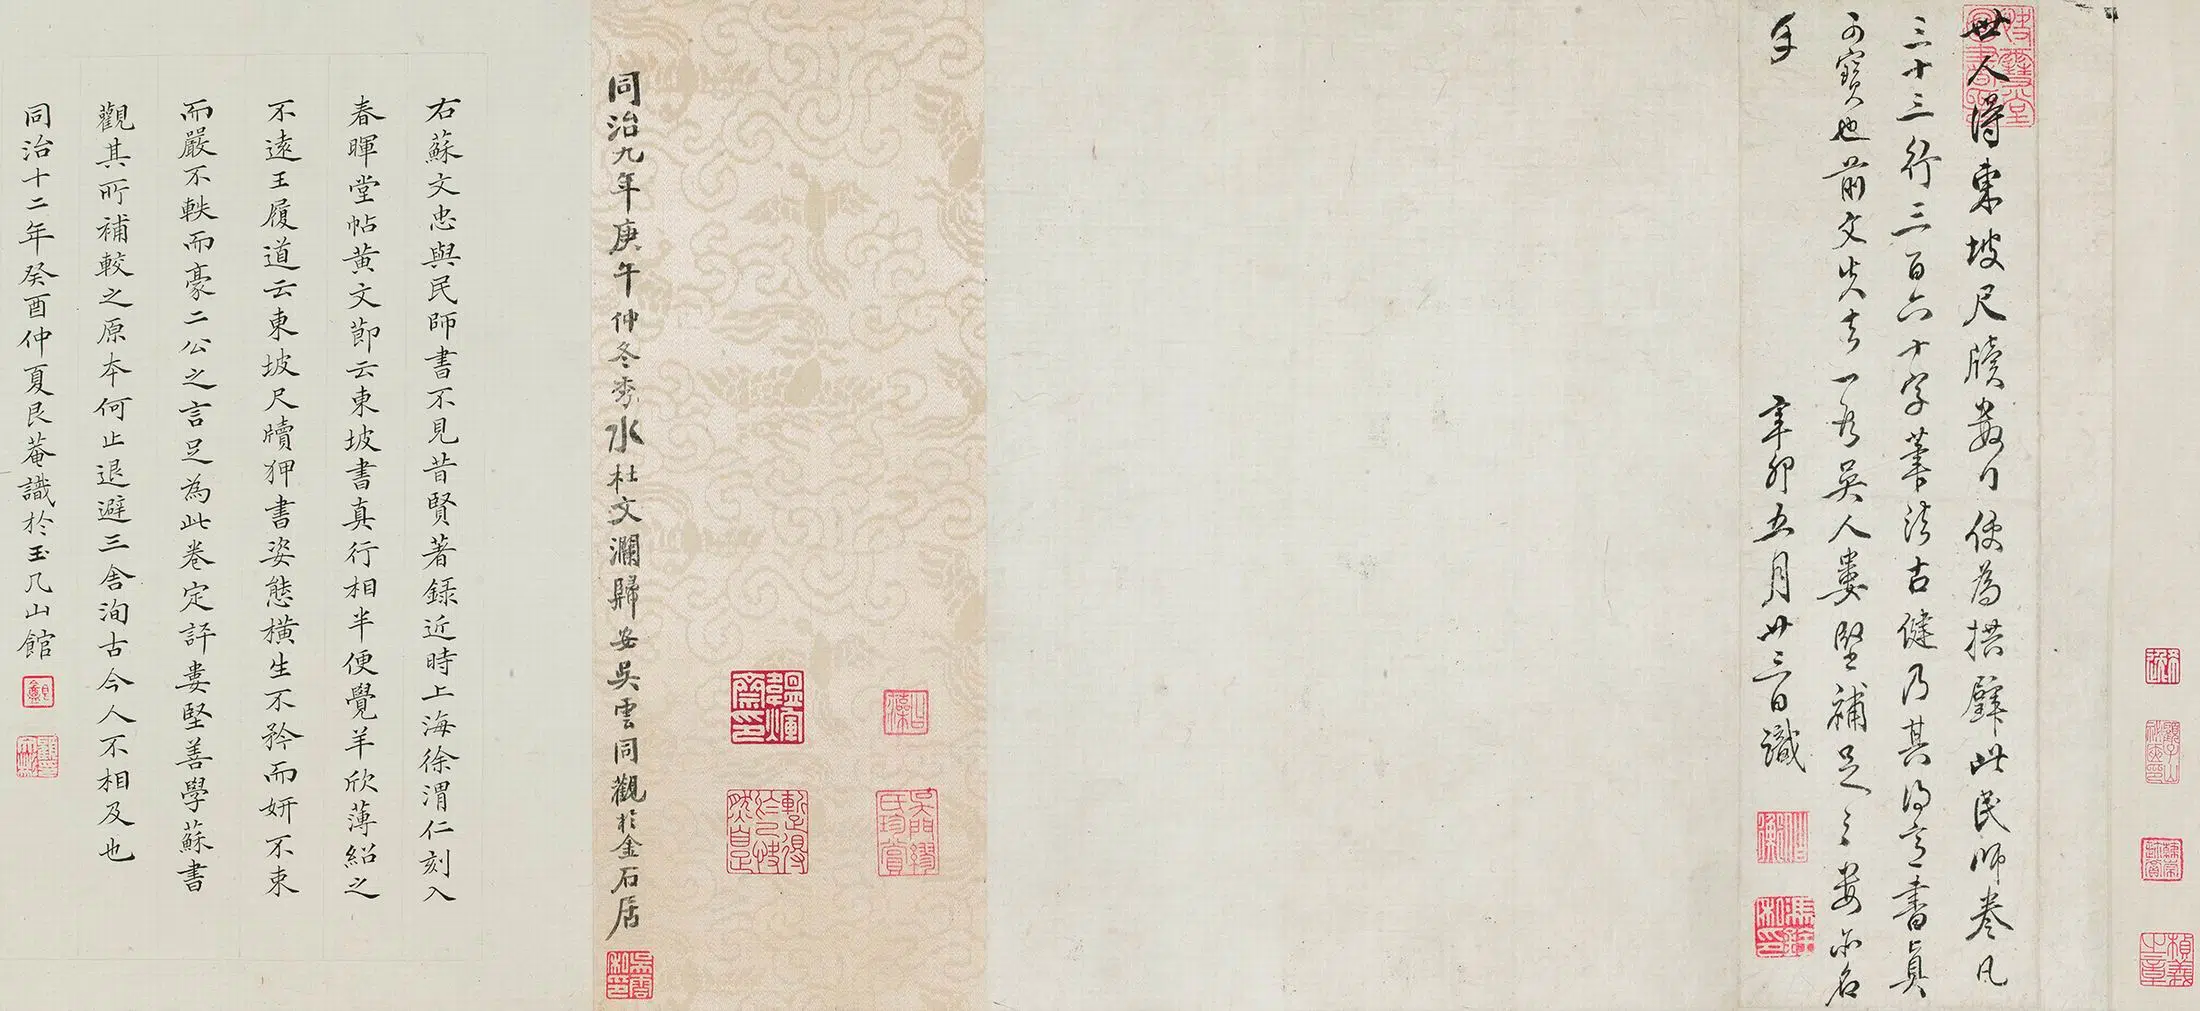 世人得東坡尺牘數行便為拱璧此民師卷凡
三十三行三百六十字筆法古健乃其得意書真
可寶也前文失去一段吳人婁堅補足之婁亦名
手
辛卯五月廿三日識
同治九年庚午仲冬秀水杜文瀾歸安吳雲同觀於金石居
右蘇文忠與民師書不見昔賢著錄近時上海徐渭仁刻入
春暉堂帖黃文節云東坡書真行相半便覺羊欣薄紹之
不遠王履道云東坡尺牘狎書姿態橫生不矜而妍不束
而嚴不軼而豪二公之言足為此卷定評婁堅善學蘇書
觀其所補較之原本何止退避三舍洵古今人不相及也
同治十二年癸酉仲夏艮菴識於玉几山館
韞煇齋印
暫得於己快然自足
吳門繆氏珍賞
吳雲私印